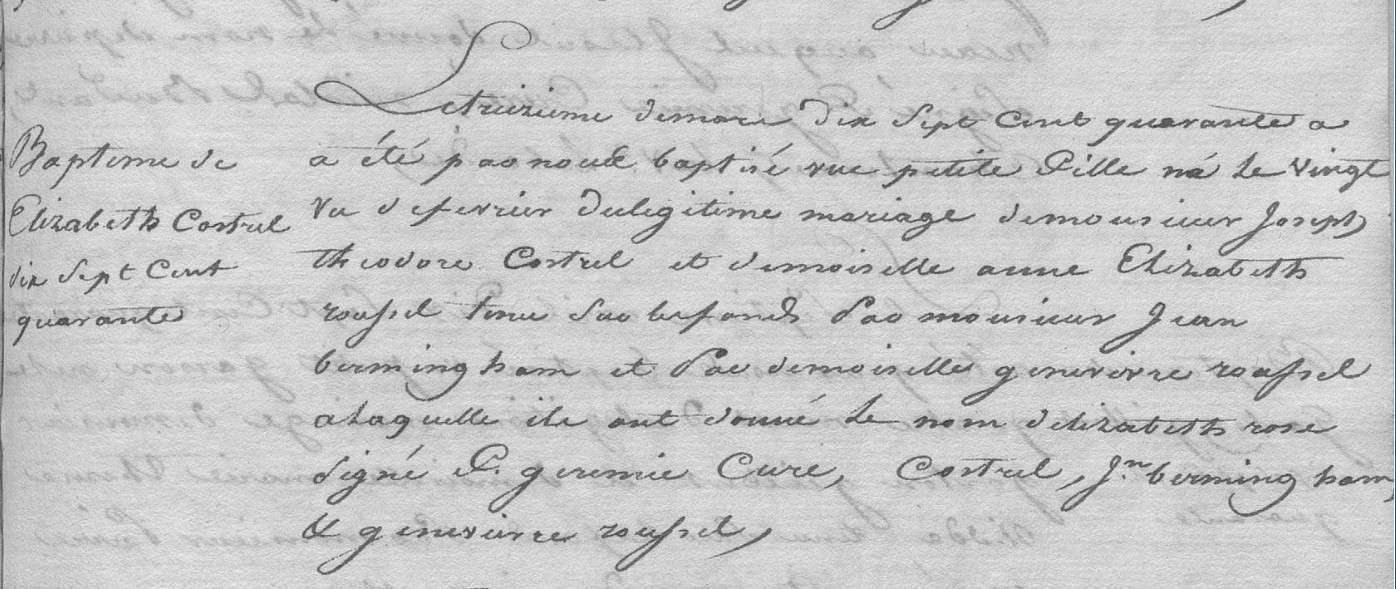 Bapteme de
Elizabeth Costrel
dix sept Cent
quarante
Le treizieme de mars dix sept Cent quarante a
a été par nous baptisé une petite fille né le vingt
un de fevrier du legitime mariage de monsieur Joseph
theodore Costrel et demoiselle anne Elizabeth
roussel tenue sur les fonds Par monsieur Jean
bermingham et Par demoiselle genevievre roussel
a laquelle ils ont donné le nom delizabeth rose
signé P. geremie Cure, Costrel, Jn bermingham,
& genevievre roussel,